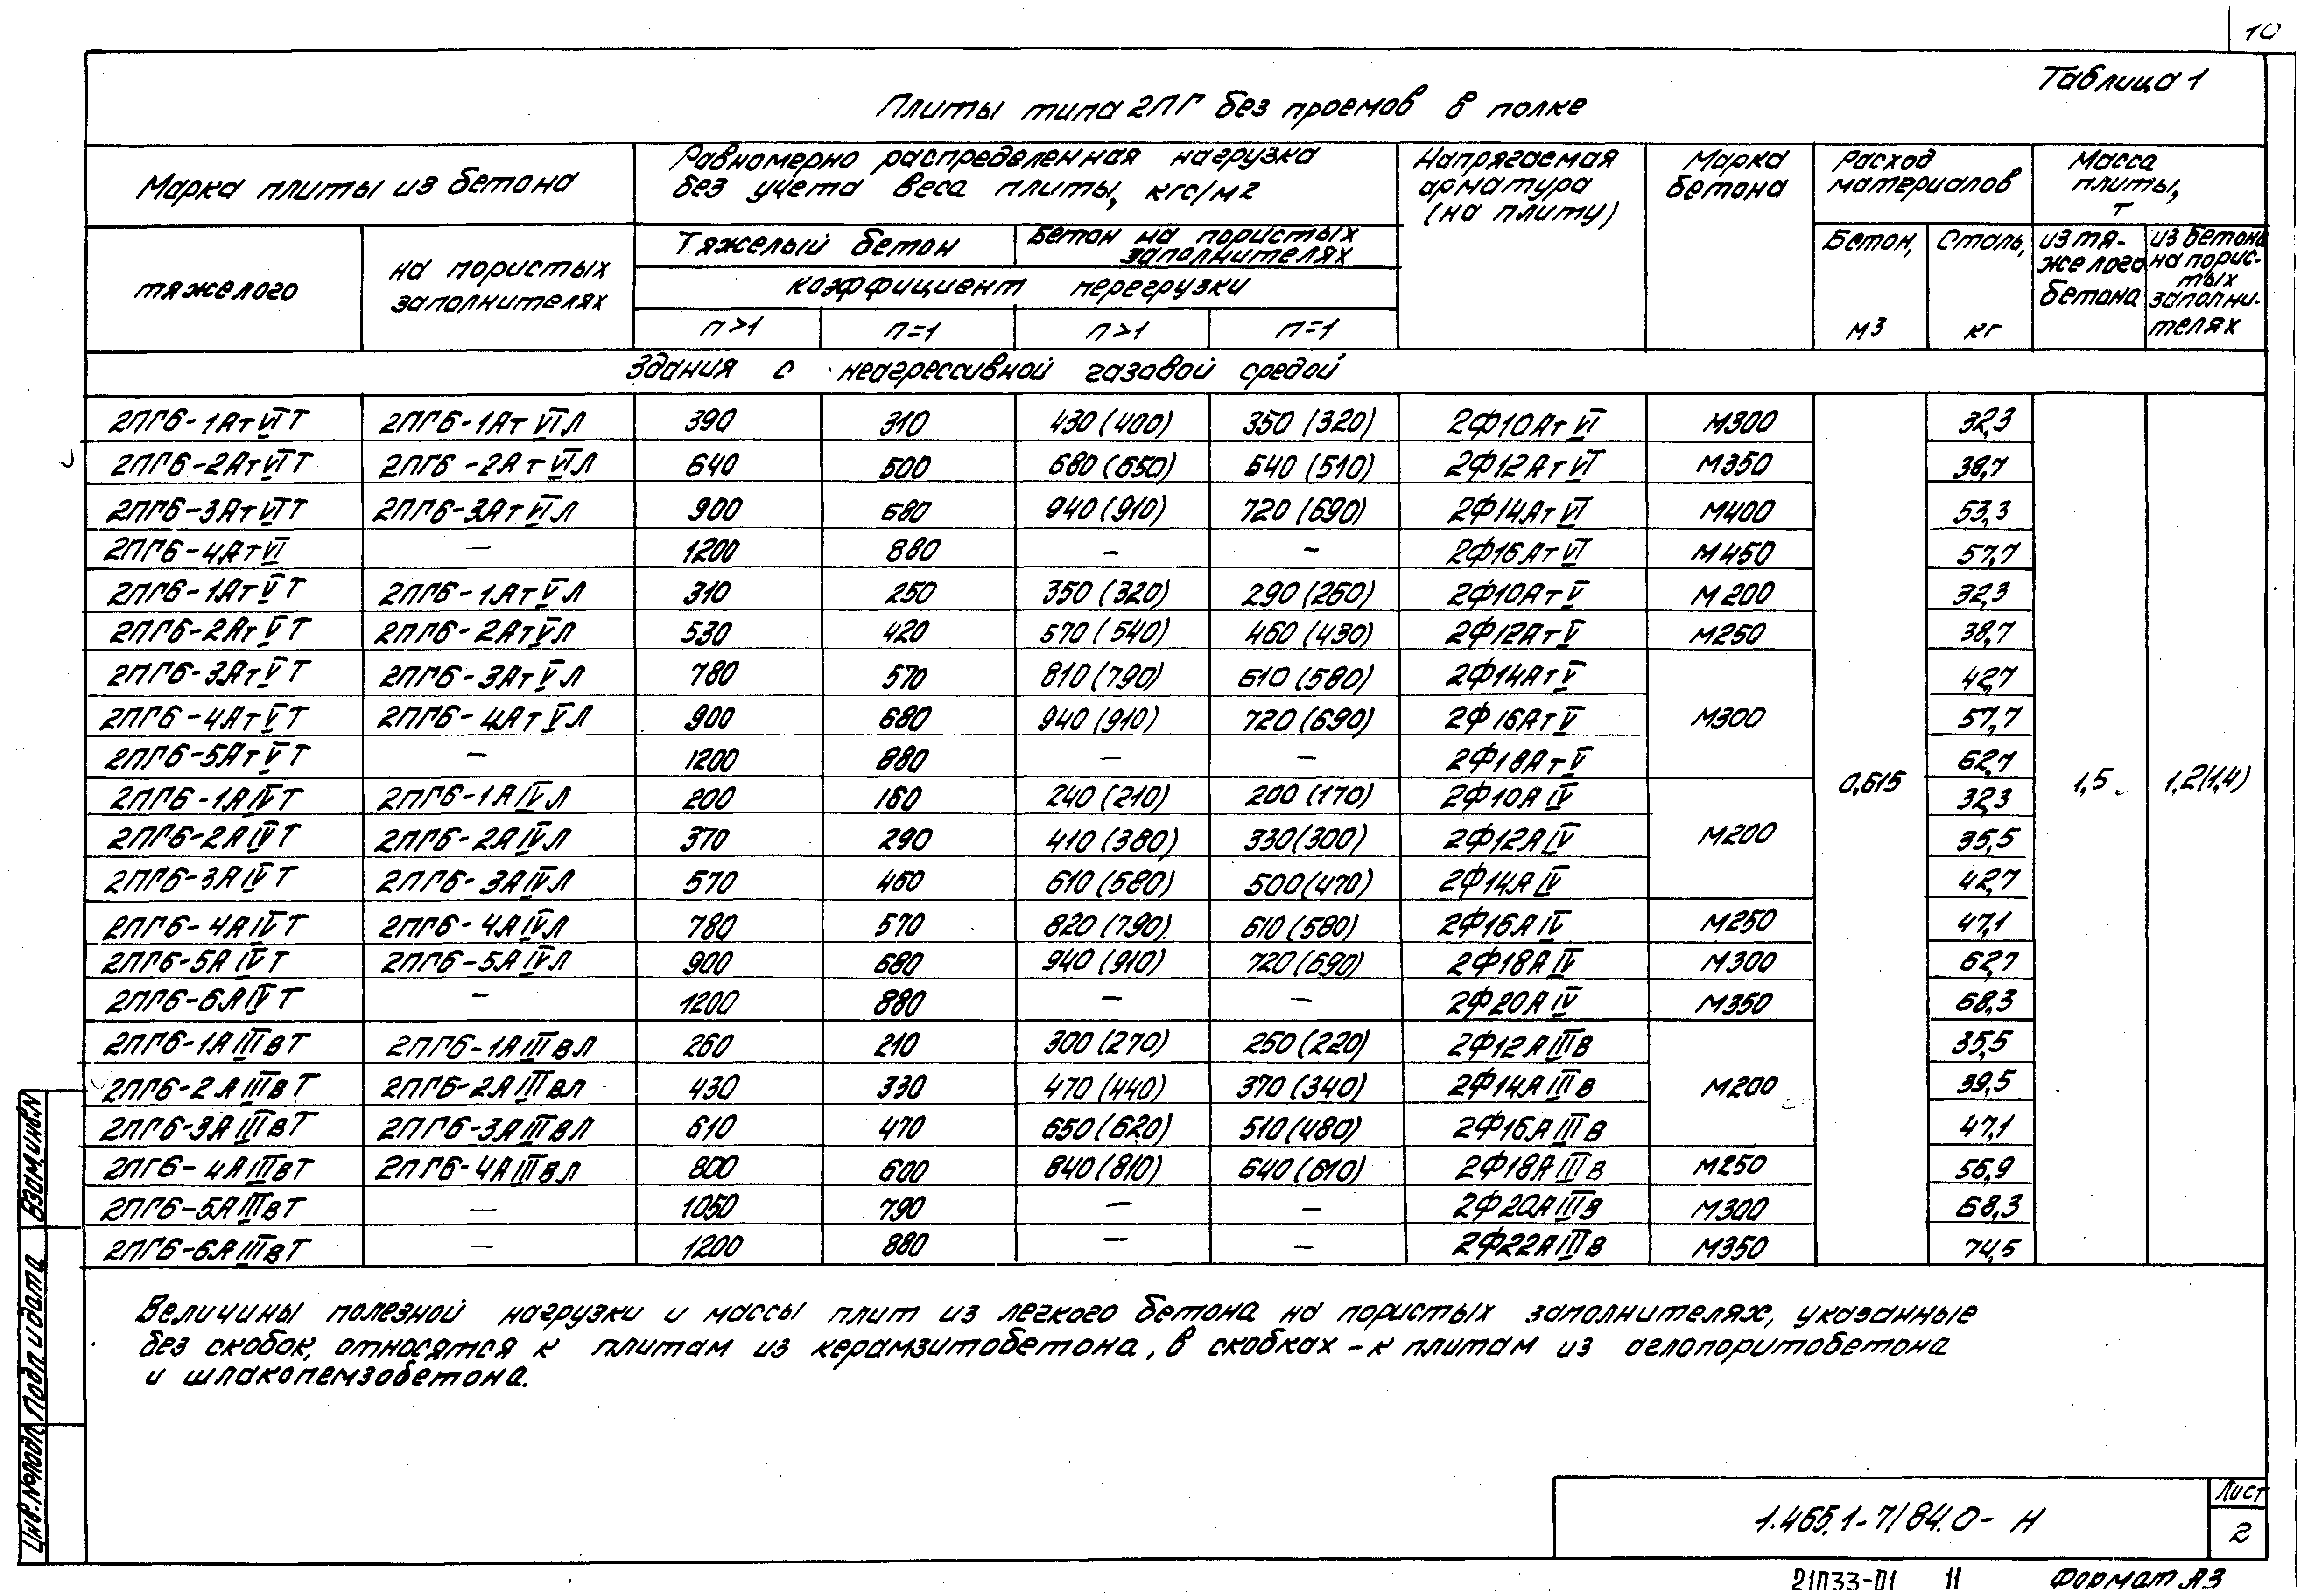 10
Таблица 1
Плиты типа 2ПГ без проемов в полке
Марка плиты из бетона
Равномерно распределенная нагрузка
без учета веса плиты, кгс/м2
Напрягаемая
арматура
(на плиту)
Марка
бетона
Расход
материалов
Масса
плиты,
т
тяжелого
на пористых
заполнителях
Тяжелый бетон
Бетон на пористых
заполнителях
коэффициент перегрузки
п>1 п=1 п>1 п=1
Бетон,
м3
Сталь,
кг
из тя-
желого
бетона
из бетона
на порис-
тых
заполни-
телях
Здания с неагрессивной газовой средой
2ПГ6-1АтVIТ 2ПГ6-1АтVIЛ 390 310 430(400) 350(320) 2Ф10АтVI М300 32,3
2ПГ6-2АтVIТ 2ПГ6-2АтVIЛ 640 500 680(650) 540(510) 2Ф12АтVI М350 38,7
2ПГ6-3АтVIТ 2ПГ6-3АтVIЛ 900 680 940(910) 720(690) 2Ф14АтVI М400 53,3
2ПГ6-4АтVI — 1200 880 — — 2Ф16АтVI М450 57,7
2ПГ6-1АтVТ 2ПГ6-1АтVЛ 310 250 350(320) 290(260) 2Ф10АтV М200 32,3
2ПГ6-2АтVТ 2ПГ6-2АтVЛ 530 420 570(540) 460(430) 2Ф12АтV М250 38,7
2ПГ6-3АтVТ 2ПГ6-3АтVЛ 780 570 810(790) 610(580) 2Ф14АтV 42,7
2ПГ6-4АтVТ 2ПГ6-4АтVЛ 900 680 940(910) 720(690) 2Ф16АтV М300 57,7
2ПГ6-5АтVТ — 1200 880 — — 2Ф18АтV 62,7
2ПГ6-1АIVТ 2ПГ6-1АIVЛ 200 160 240(210) 200(170) 2Ф10АIV 0,615 32,3 1,5 1,2(1,4)
2ПГ6-2АIVТ 2ПГ6-2АIVЛ 370 290 410(380) 330(300) 2Ф12АIV М200 35,5
2ПГ6-3АIVТ 2ПГ6-3АIVЛ 570 460 610(580) 500(470) 2Ф14АIV 42,7
2ПГ6-4АIVТ 2ПГ6-4АIVЛ 780 570 820(790) 610(580) 2Ф16АIV М250 47,1
2ПГ6-5АIVТ 2ПГ6-5АIVЛ 900 680 940(910) 720(690) 2Ф18АIV М300 62,7
2ПГ6-6АIVТ — 1200 880 — — 2Ф20АIV М350 68,3
2ПГ6-1АIIIвТ 2ПГ6-1АIIIвЛ 260 210 300(270) 250(220) 2Ф12АIIIв 35,5
2ПГ6-2АIIIвТ 2ПГ6-2АIIIвЛ 430 330 470(440) 370(340) 2Ф14АIIIв М200 39,5
2ПГ6-3АIIIвТ 2ПГ6-3АIIIвЛ 610 470 650(620) 510(480) 2Ф16АIIIв 47,1
2ПГ6-4АIIIвТ 2ПГ6-4АIIIвЛ 800 600 840(810) 640(610) 2Ф18АIIIв М250 56,9
2ПГ6-5АIIIвТ — 1050 790 — — 2Ф20АIIIв М300 68,3
2ПГ6-6АIIIвТ — 1200 880 — — 2Ф22АIIIв М350 74,5
Величины полезной нагрузки и массы плит из легкого бетона на пористых заполнителях, указанные
без скобок, относятся к плитам из керамзитобетона, в скобках - к плитам из аглопоритобетона
и шлакопемзобетона.
Инв.№подл. Подп. и дата Взам.инв.N
1.465.1-7/84.0-Н
Лист
2
21033-01 11 Формат А3